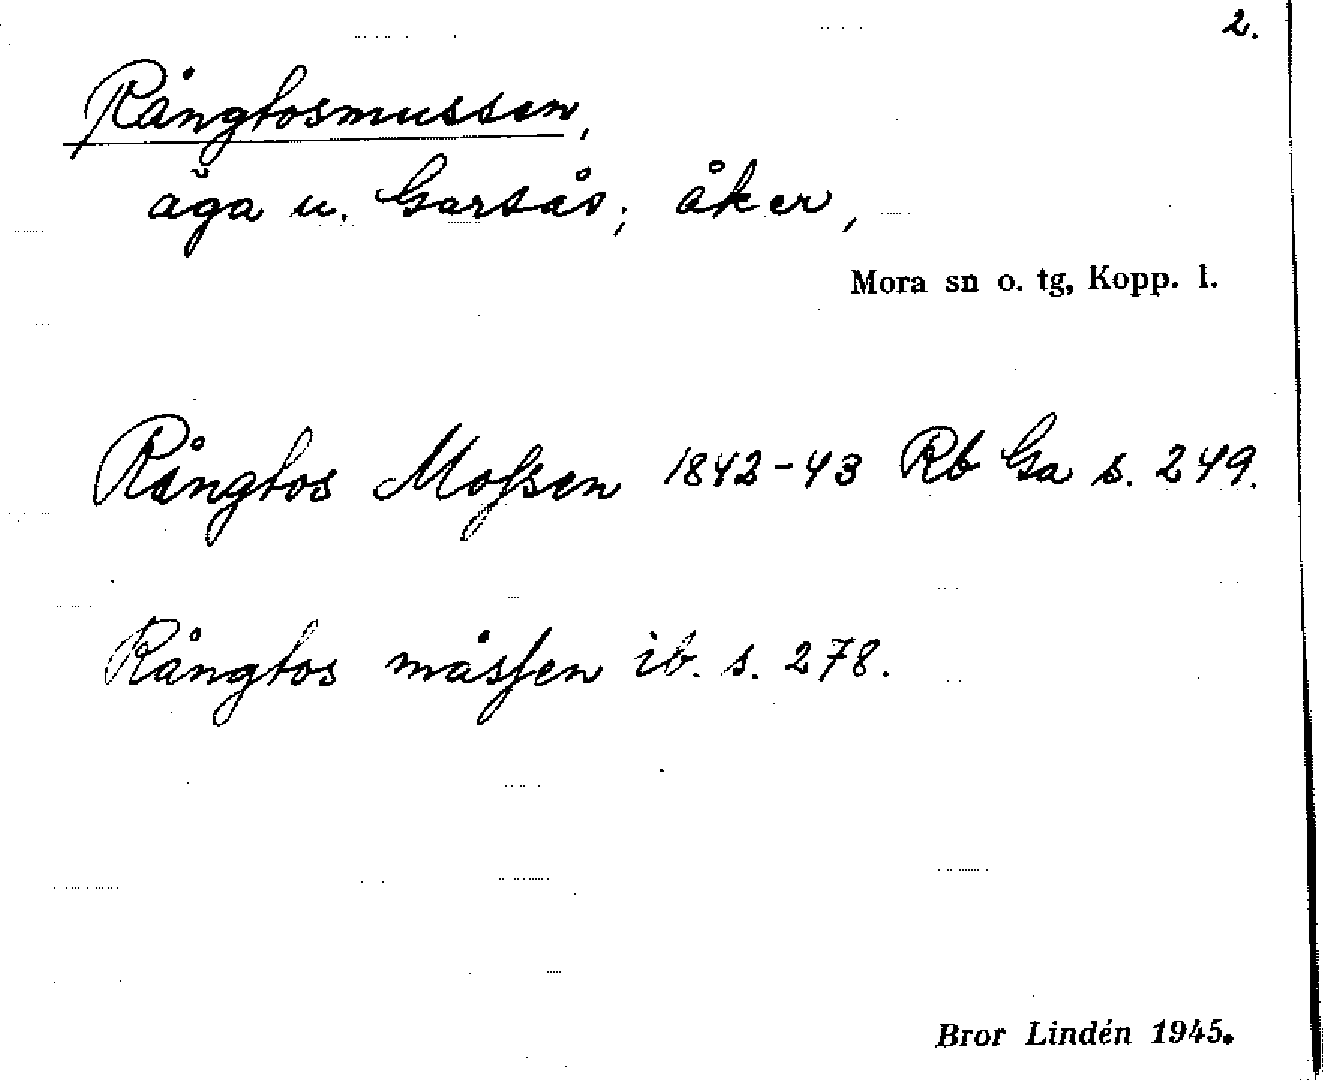 2.
Rångtosmussen,
äga u. Garsås; åker,
Mora sn o. tg, Kopp. l.
Rångtos Mofsen 1842-43 Rb Ga s. 249.
Rångtos måsfen ib. s. 278.
Bror Lindén 1945.